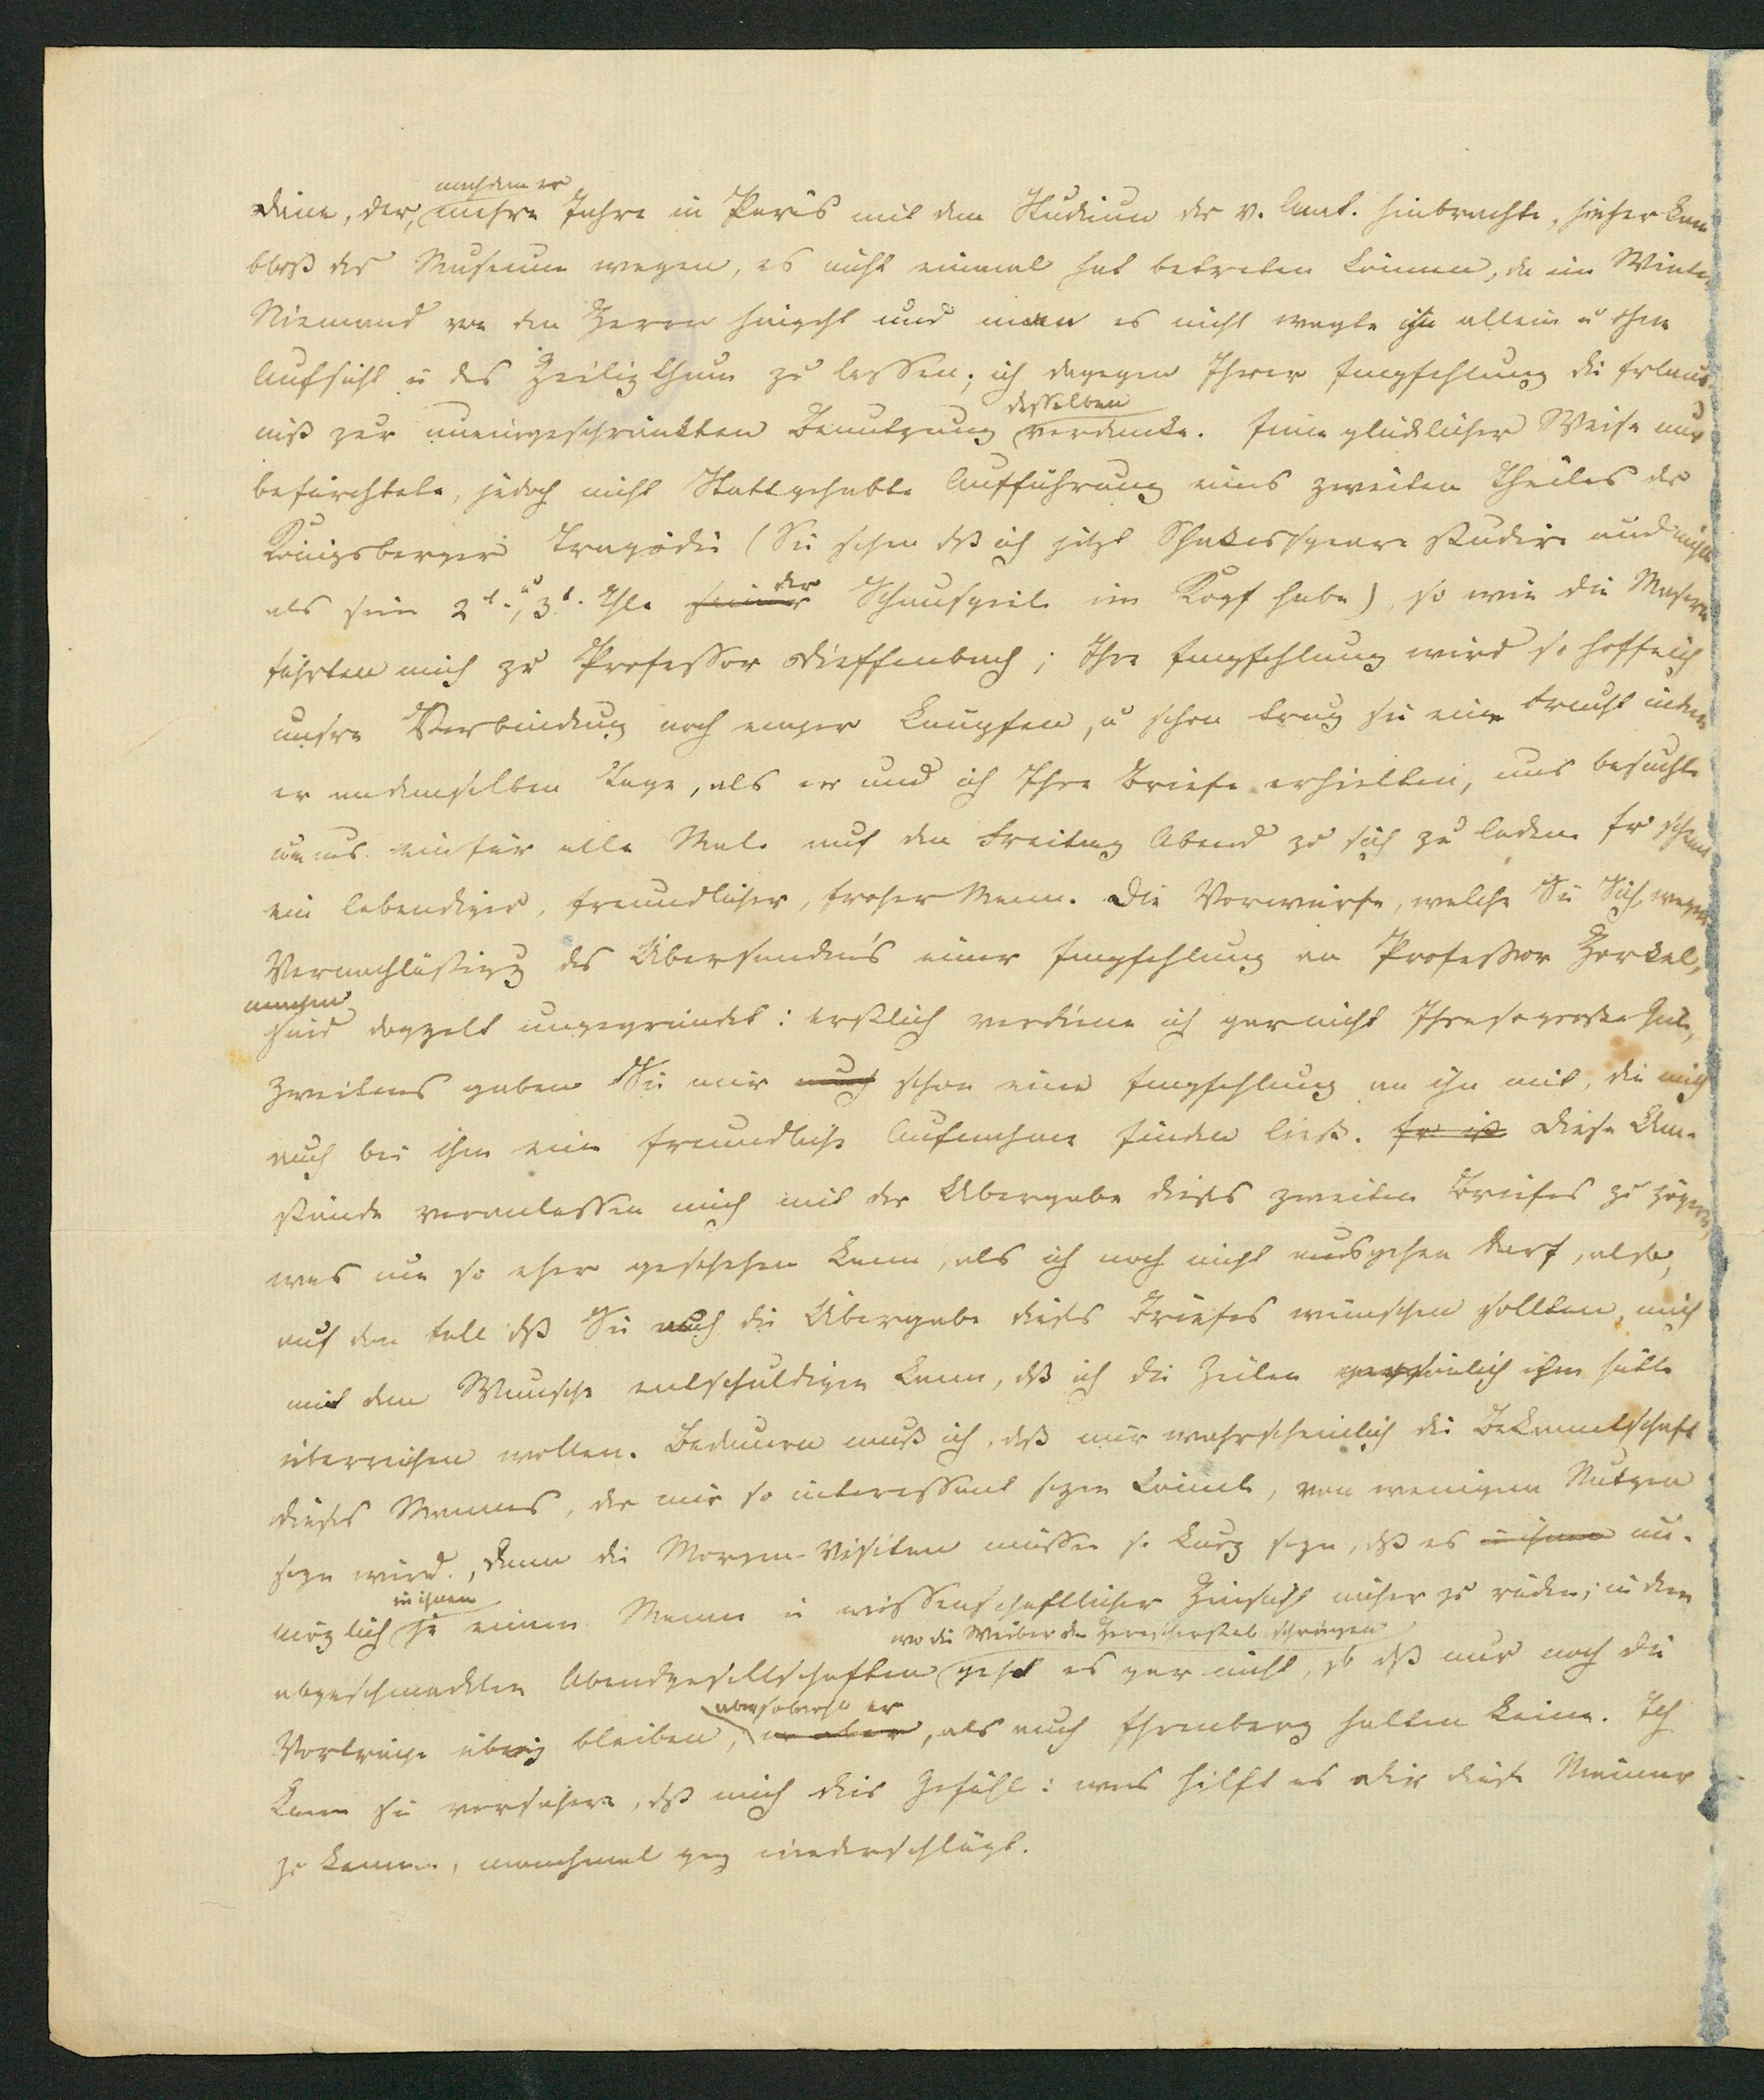 Däne, der, nachdem er mehre Jahre in Paris mit dem Studium der v. Anat. hinbrachte, hieher kam
bloß des Museums wegen, es nicht einmal hat betreten können, da im Winter
Niemand von den Herrn hingeht und man es nicht wagte ihn allein u ohne
Aufsicht in das Heiligthum zu lassen; ich dagegen Ihrer Empfehlung die Erlaub-
niß zur uneingeschränkten Benutzung desselben verdanke. Eine glücklicher Weise nur
befürchtete, jedoch nicht Stattgehabte Aufführung eines zweiten Theiles der
Königsberger Tragödie (Sie sehen dß ich jetzt Shakespeare studire und nichts
als sein 2t. u 3t. Thle seiner der Schauspiele im Kopf habe), so wie die Masern
führten mich zu Professor Dieffenbach; Ihre Empfehlung wird so hoffe ich
unsre Verbindung noch enger knüpfen, u schon trug sie eine Frucht indem
er an demselben Tage, als er und ich Ihre Briefe erhielten, uns besuchte
um uns ein für alle Male auf den Freitag Abend zu sich zu laden. Er scheint
ein lebendiger, freundlicher, froher Mann. Die Vorwürfe, welche Sie Sich wegen
Vernachläßigg des Übersendens einer Empfehlung an Professor Horkel,
machen sind doppelt ungegründet: erstlich verdiene ich gar nicht Ihre so große Güte,
zweitens gaben Sie mir auch schon eine Empfehlung an ihn mit, die mich
auch bei ihm eine freundliche Aufnahme finden ließ. Er ist Diese Um-
stände veranlassen mich mit der Übergabe dieses zweiten Briefes zu zögern,
was um so eher geschehen kann, als ich noch nicht ausgehen darf, also,
auf den Fall dß Sie auch die Übergabe dieses Briefes wünschen sollten, mich
mit dem Wunsche entschuldigen kann, dß ich die Zeilen persönlich ihm hätte
überreichen wollen. Bedauern muß ich, dß mir wahrscheinlich die Bekanntschaft
dieses Mannes, die mir so interessant seyn könnte, von wenigem Nutzen
seyn wird., denn die Morgen-Visiten müssen so kurz seyn, dß es in ihnen un-
möglich ist in ihnen einem Manne in wissenschaftlicher Hinsicht näher zu rücken; in den
abgeschmackten Abendgesellschaften wo die Weiber den Herrscherstab schwingen geht es gar nicht, so dß nur noch die
Vorträge übrig bleiben, er aber aber sowohl er, als auch Ehrenberg halten keine. Ich
kann sie versichern, dß mich dies Gefühl: was hilft es dir diese Männer
zu kennen, manchmal ganz niederschlägt.